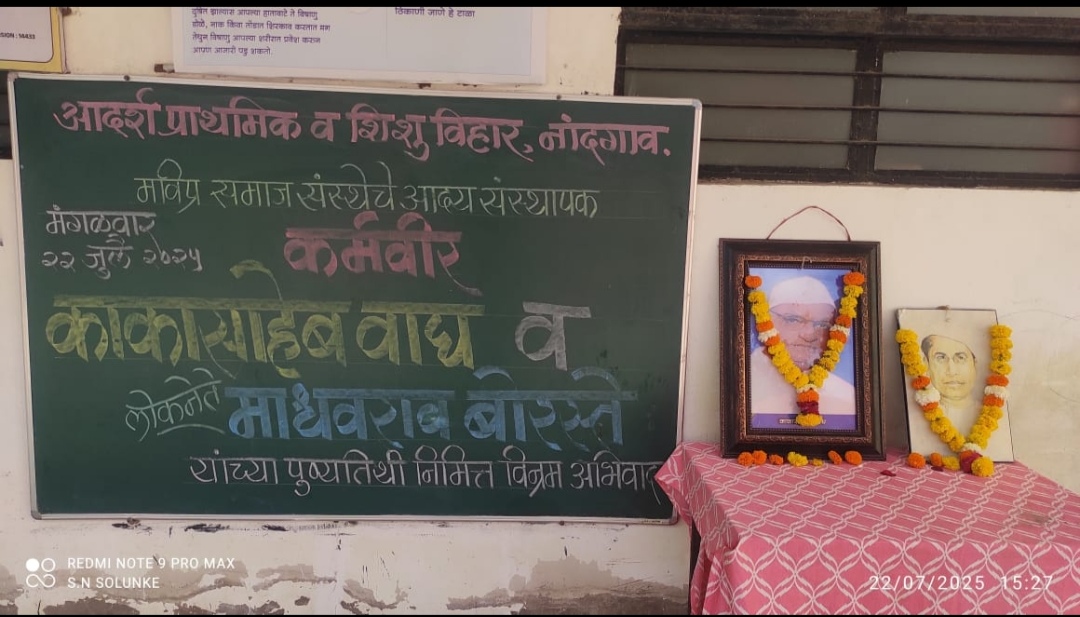 SION : 14433
दूषित झाल्यास आपल्या हातावाटे ते विषाणु
डोळे, नाक किंवा तोंडात शिरकाव करतात मग
तेथुन विषाणु आपल्या शरीरात प्रवेश करून
आपण आजारी पडू शकतो.
ठिकाणी जाणे हे टाळा
आदर्श प्राथमिक व शिशु विहार, नांदगाव.
मविप्र समाज संस्थेचे आद्य संस्थापक
मंगळवार
२२ जुलै २०२५
कर्मवीर
काकासाहेब वाघ व
लोकनेते माधवराव बोरस्ते
यांच्या पुण्यतिथी निमित्त विनम्र अभिवाद
REDMI NOTE 9 PRO MAX
S.N SOLUNKE
22/07/2025 15:27